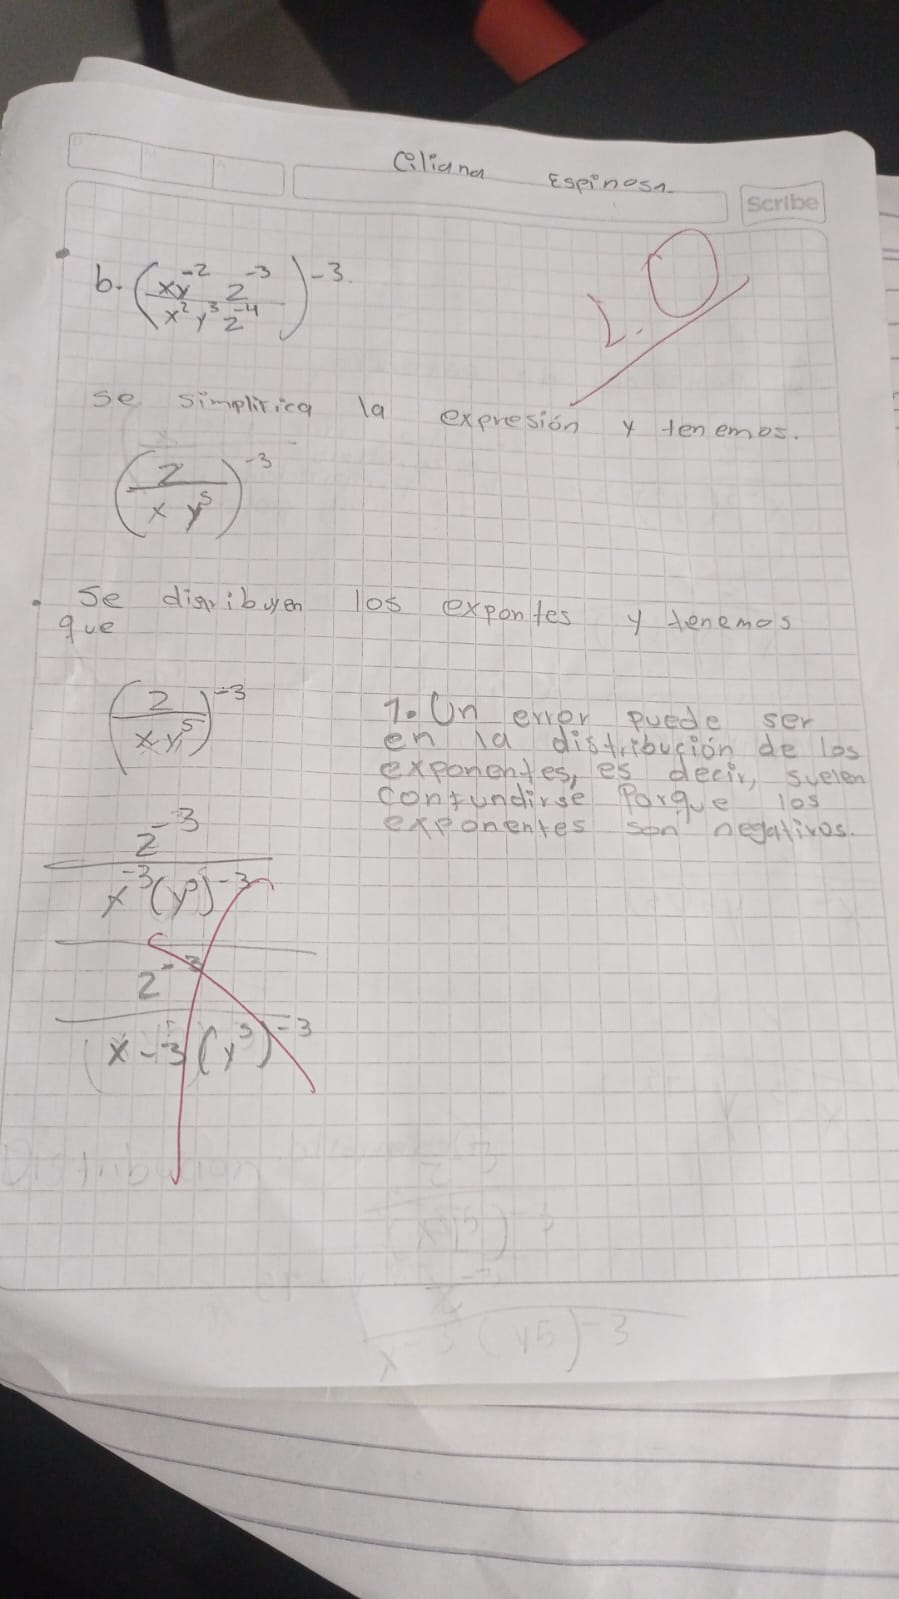 Ciliana Espinosa
Scribe
b. (xy^-2 z^-3 / x^2 y^3 z^-4)^-3.
2.0
se simplifica la expresión y tenemos.
(z / x y^5)^-3
. Se disribuyen los expontes y tenemos
que
(z / x y^5)^-3
1. Un error puede ser
en la distribución de los
exponentes, es decir, suelen
confundirse Porque los
exponentes son negativos.
z^-3 / x^-3 (y^5)^-3
z^-3 / x-3 (y^5)^-3
x^-3 (y5)^-3